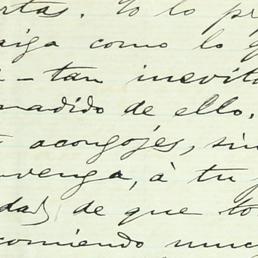 tas. Yo lo pr
aiga como lo q
i - tan inevita
madido de ello.
acongojes, sin
venga, à tu
dad, de que to
comiendo muc